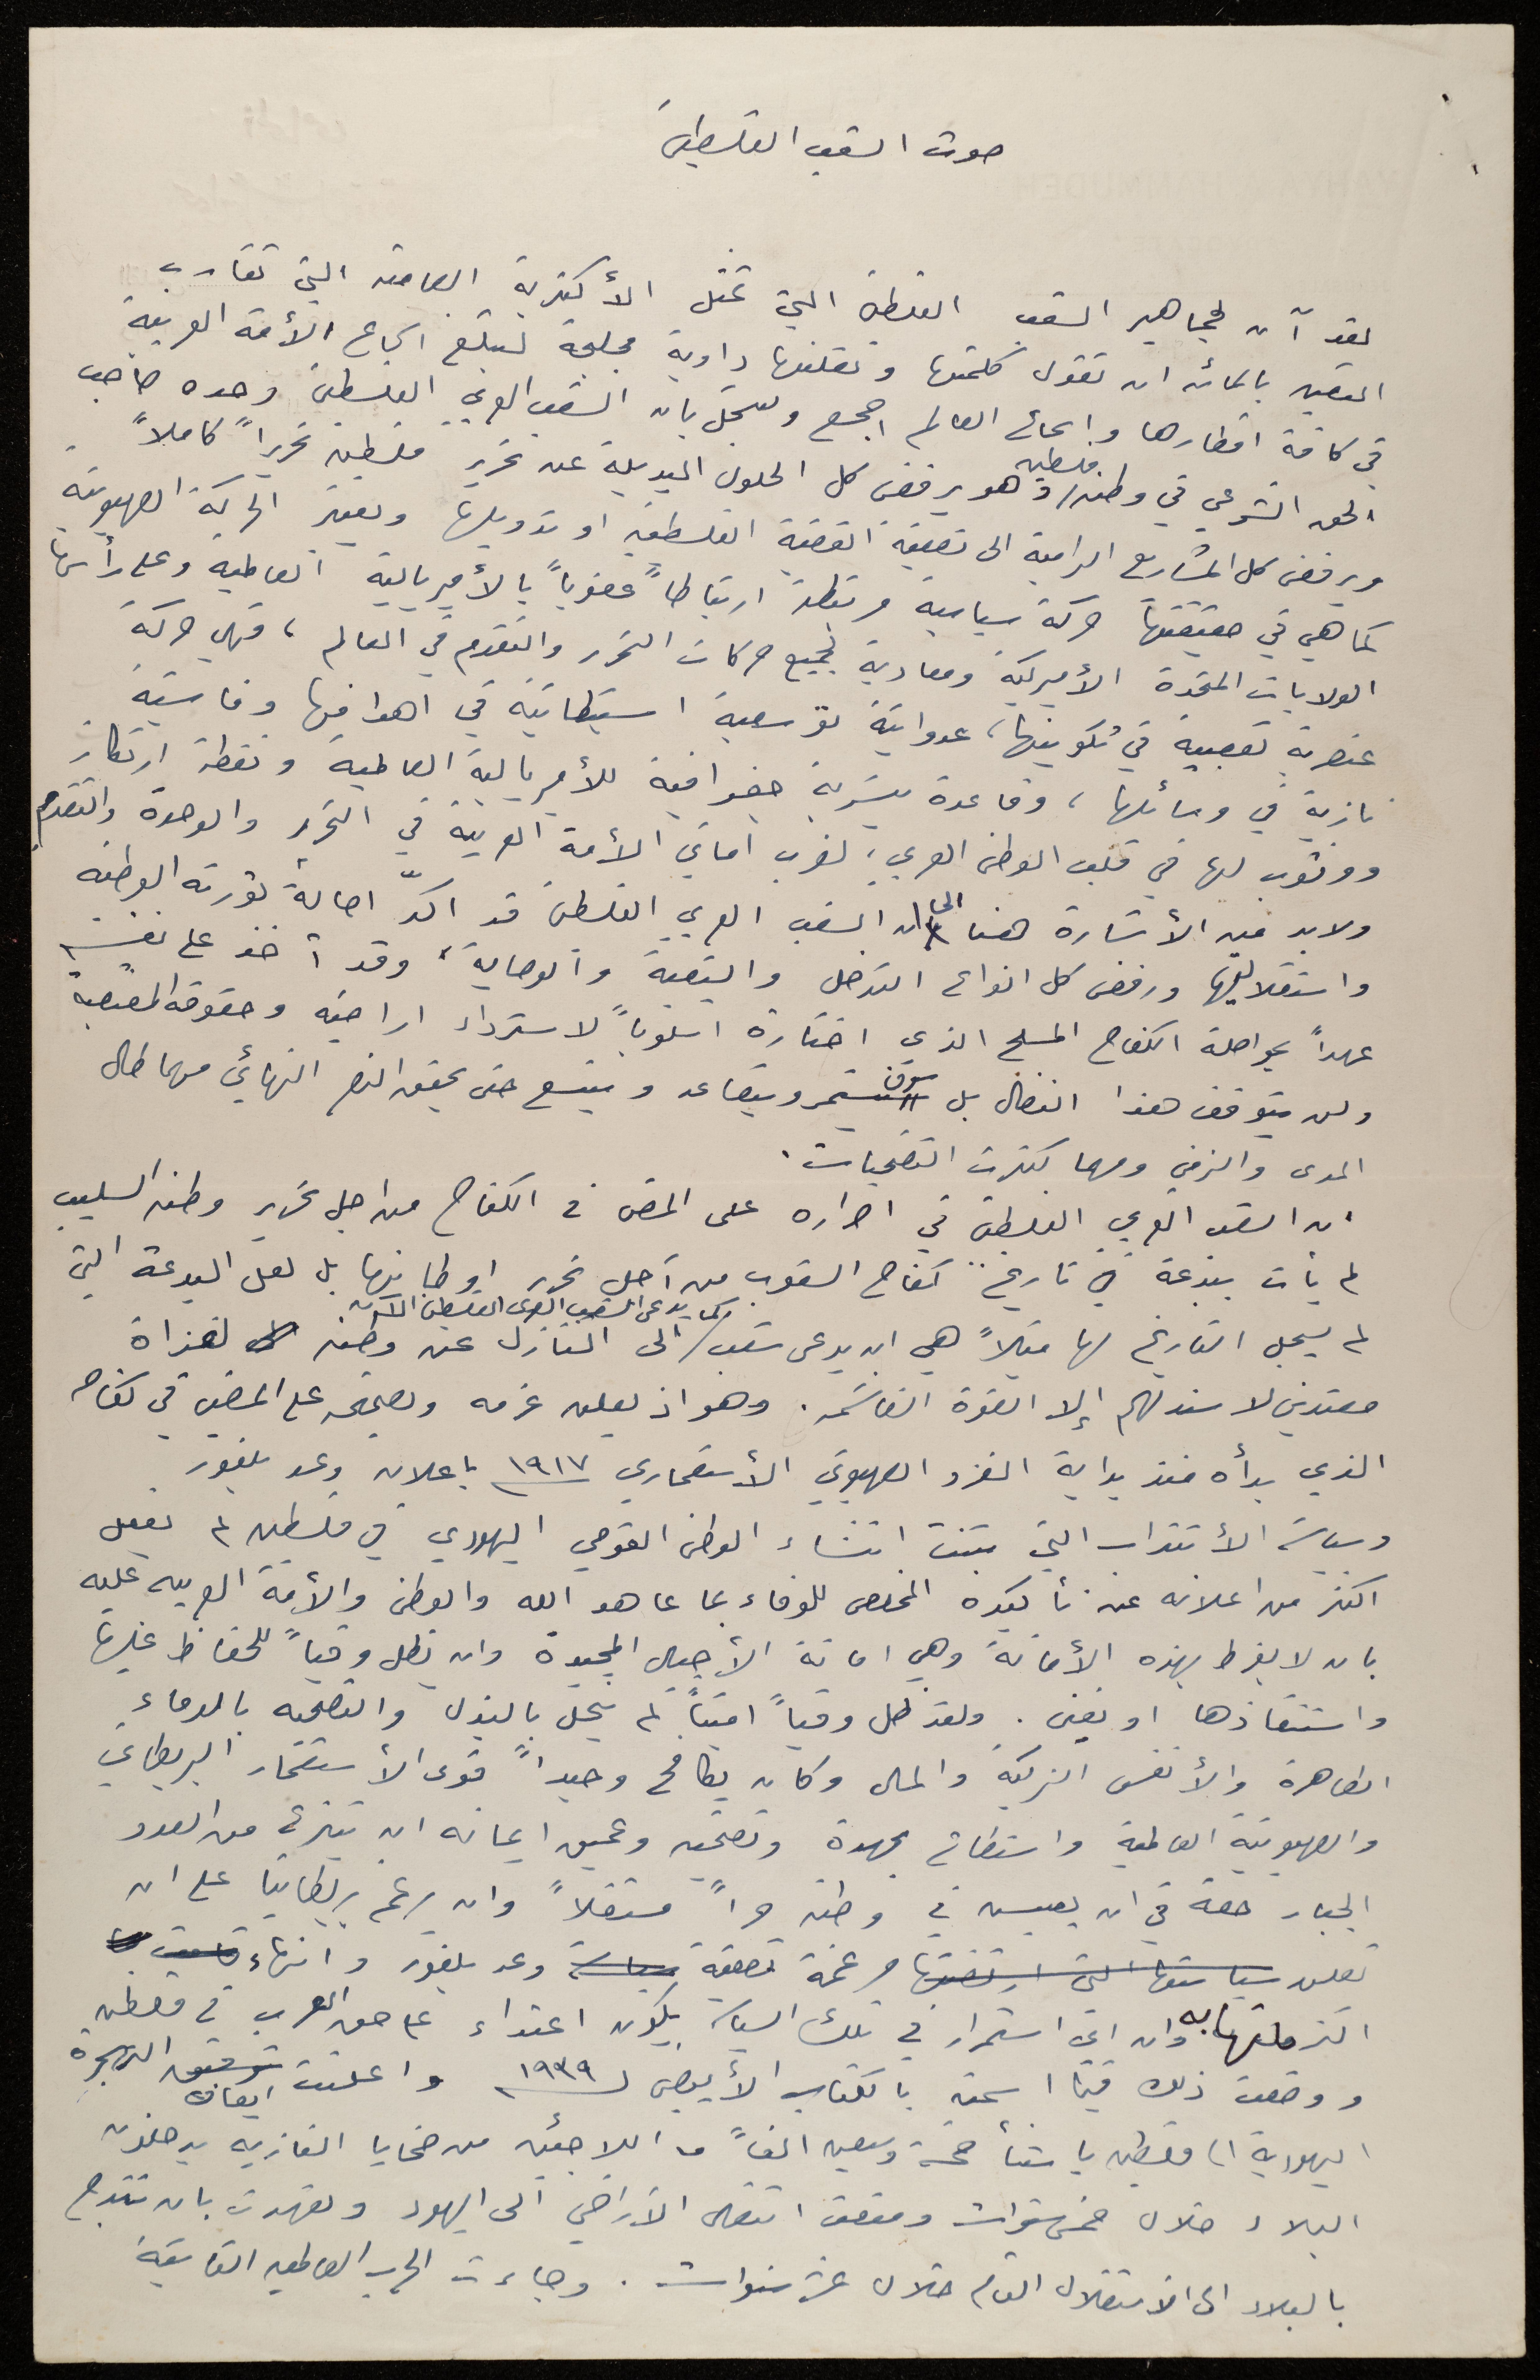 صوت الشعب الفلسطيني
لقد آن لجماهير الشعب الفلسطيني التي تمثل الأكثرية الصامتة التي تقارب
التسعين بالمائة ان تقول كلمتها وتعلنها داوية مجلجلة لتبلغ اسماع الأمة العربية
في كافة اقطارها وانحاء العالم اجمع ولتسجل بان الشعب العربي الفلسطيني وحده صاحب
الحق الشرعي في وطنه فلسطين وهو يرفض كل الحلول البديلة عن تحرير فلسطين تحريراً كاملاً
ويرفض كل المشاريع الرامية الى تصفية القضية الفلسطينية او تدويلها ويعتبر الحركة الصهيونية
كما هي في حقيقتها حركة سياسية مرتبطة ارتباطاً عضوياً بالأمبريالية العالمية وعلى رأسها
الولايات المتحدة الأميركية ومعادية لجميع حركات التحرر والتقدم في العالم ، فهي حركة
عنصرية تعصبية في تكوينها، عدوانية توسعية استيطانية في اهدافها وفاشية
نازية في وسائلها ، وقاعدة بشرية جغرافية للأمبريالية العالمية ونقطة ارتكاز
ووثوب لها في قلب الوطن العربي ، لضرب اماني الأمة العربية في التحرر والوحدة والتقدم.
ولابد من الأشارة هنا الى ان الشعب العربي الفلسطيني قد اكدّ اصالة ثورته الوطنية
واستقلاليتها ورفض كل انواع التدخل والتبعية والوصاية ، وقد أخذ على نفسه
عهداً بمواصلة الكفاح المسلح الذي اختاره اسلوباً لاسترداد اراضيه وحقوقه المغتصبة
ولن يتوقف هذا النضال بل سوف يستمر ويتصاعد ويتسع حتى يحقق النصر النهائي مهما طال
المدى والزمن ومهما كثرت التضحيات .
ان الشعب العربي الفلسطيني في اصراره على المضي في الكفاح من اجل تحرير وطنه السليب
لم يأت ببدعة في تاريخ كفاح الشعوب من أجل تحرير اوطانها بل لعل البدعة التي
لم يسجل التاريخ لها مثيلاً هي ان يدعى شعب كما يدعى الشعب العربي الفلسطيني الآن الى التنازل عن وطنه لغزاة
معتدين لا سند لهم إلا القوة الغاشمة . وهو اذ يعلن عزمه وتصميمه على المضي في كفاحه
الذي بدأه منذ بداية الغزو الصهيوني الأستعماري ١٩١٧ باعلان وعد بلفور
وسياسة الأنتداب التي تبنت انشاء الوطن القومي اليهودي في فلسطين لم يفعل
اكثر من اعلانه عن تأكيده المخلص للوفاء بما عاهد الله والوطن والأمة العربية عليه
بان لا يفرط بهذه الأمانة وهي امانة الأجيال المجيدة وان يظل وفياً للحفاظ عليها
واستنقاذها او يفنى . ولقد ظل وفياً امينا لم يبخل بالبذل والتضحية بالدماء
الطاهرة والأنفس الزكية والمال وكان يكافح وحيداً قوى الأستعمار البريطاني
والصهيونية العالمية واستطاع بجهده وتضحيته وعميق ايمانه ان ينتزع من العدو
الجبار حقه في ان يعيش في وطنه حراً مستقلاً وان يرغم بريطانيا على ان
تعلن سياستها التي ارتضتها مرغمة تصفية سياسة وعد بلفور وانتهاء
التزاماتها به وان اي استمرار في تلك السياسة يكون اعتداء على حق العرب في فلسطين
ووضعت ذلك فيما اسمته بالكتاب الأبيض لـ ١٩٣٩ واعلنت ايقاف الهجرة
اليهودية الى فلسطين باستثناء خمسة وسبعين الفاً من اللاجئين من ضحايا النازية يدخلون
البلاد خلال خمس سنوات ومنعت انتقال الأراضي الى اليهود وتعهدت بان تتدرج
بالبلاد الى الاستقلال التام خلال عشر سنوات . وجاءت الحرب العالمية الثانية